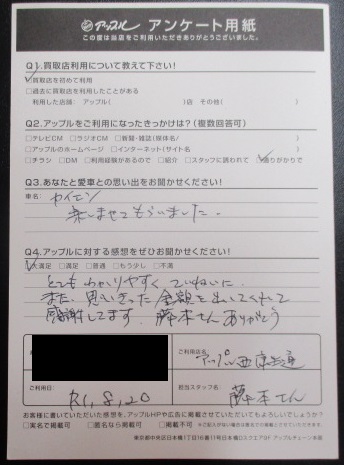 アップル アンケート用紙
この度は当店をご利用いただきありがとうございました。
Q1.買取店利用について教えて下さい!
☑買取店を初めて利用
□過去に買取店を利用したことがある
利用した店舗: アップル( )店 その他( )
Q2.アップルをご利用になったきっかけは?(複数回答可)
□テレビCM □ラジオCM □新聞・雑誌(媒体名/ )
□アップルのホームページ □インターネット(サイト名 )
□チラシ □DM □利用経験があるので □紹介 □スタッフに誘われて ☑通りがかりで
Q3.あなたと愛車との思い出をお聞かせください!
車名: カイエン
楽しませてもらいました。
Q4.アップルに対する感想をぜひお聞かせください!
☑大満足 □満足 □普通 □もう少し □不満
とてもわかりやすく、ていねいに、
また、思いきった金額を出してくれて
感謝してます。藤本さんありがとう
ご利用店名
アップル西京極通
ご利用日 R1,8,20
担当スタッフ名 藤本さん
お客様に書いていただいた感想を、アップルHPや広告に掲載させていただいてもよろしいでしょうか?
□実名で掲載可 □匿名なら掲載可 □掲載不可
東京都中央区日本橋1丁目16番11号日本橋Dスクエア5F アップルチェーン本部